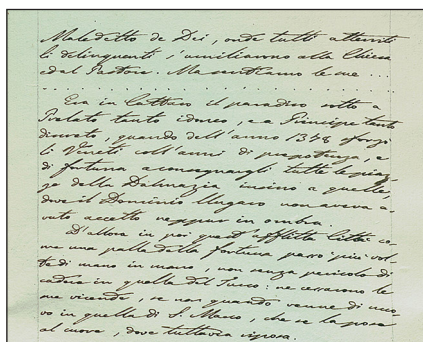 Maledetto de Dei, onde tutti atterriti
li delinquenti s'umiliarono alla Chiesa
ed al Pastore. Ma sentiamo le sue ...
. . . . . . . . . . . . . . . . . . . .
Era in Cattaro il paradiso sotto a
Prelato tanto idoneo, e a Principe tanto
discreto, quando dell'anno 1378 sforzò
li Veneti coll'armi di prepotenza, e
di fortuna a consegnargli tutte le piaz-
ze della Dalmazia insino a quelle,
dove il Dominio Ungaro non aveva a-
vuto accetto neppur in ombra.
D'allora in poi quest'afflitta Città co-
me una palla della fortuna passò più vol-
te di mano in mano, non senza pericolo di
cadere in quella del Turco: ne cessarono le
sue vicende, se non quando venne di nuo-
vo in quella di S. Marco, che se la pose
al cuore, dove tuttavia riposa.